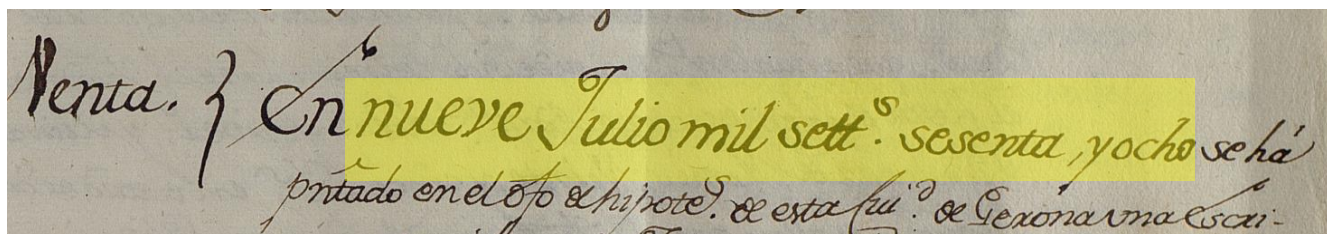 Venta. } En nueve Julio mil sett.s sesenta, y ocho se há
pntado en el ofo de hipote.s de esta Ciu.d de Gerona una Escri-